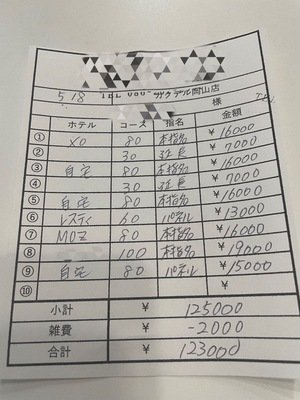 5/18
岡山店
様
ホテル コース 指名 金額
① XO 80 本指名 ¥16000
② 30 延長 ¥7000
③ 自宅 80 本指名 ¥16000
④ 30 延長 ¥7000
⑤ 自宅 80 本指名 ¥16000
⑥ レスティ 60 パネル ¥13000
⑦ MOZ 80 本指名 ¥16000
⑧ 100 本指名 ¥19000
⑨ 自宅 80 パネル ¥15000
⑩ ¥
小計 ¥ 125000
雑費 ¥ -2000
合計 ¥ 123000